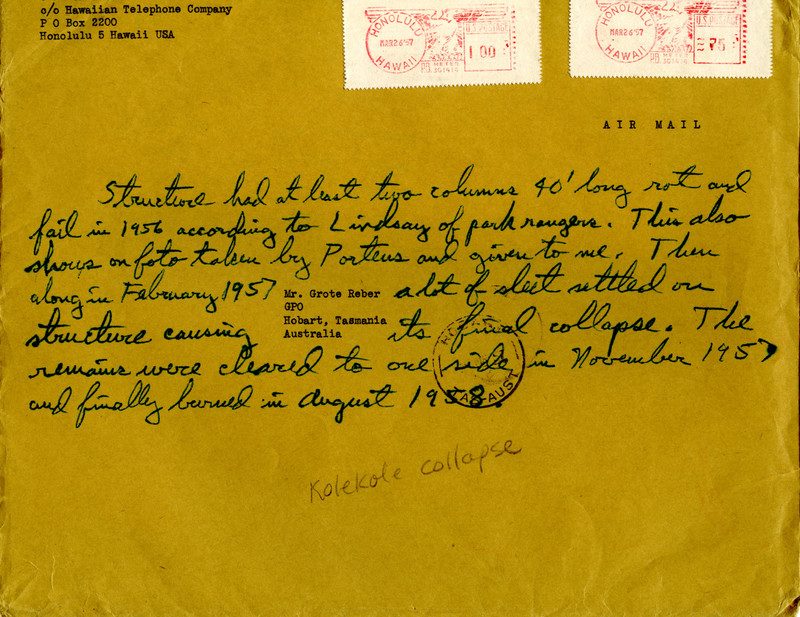 c/o Hawaiian Telephone Company
P O Box 2200
Honolulu 5 Hawaii USA
HONOLULU
MAR26'57
HAWAII
U.S. POSTAGE
1 00
P.B. METER
HONOLULU
MAR26'57
HAWAII
U.S. POSTAGE
75
P.B. METER
AIR MAIL
Structure had at least two columns 40' long rot and
fail in 1956 according to Lindsay of park rangers. This also
shows on foto taken by Porteus and given to me. Then
along in February 1957 a lot of sleet settled on
structure causing its final collapse. The
remains were cleared to one side in November 1957
and finally burned in August 1958.
Mr. Grote Reber
GPO
Hobart, Tasmania
Australia
AUST
Kolekole collapse